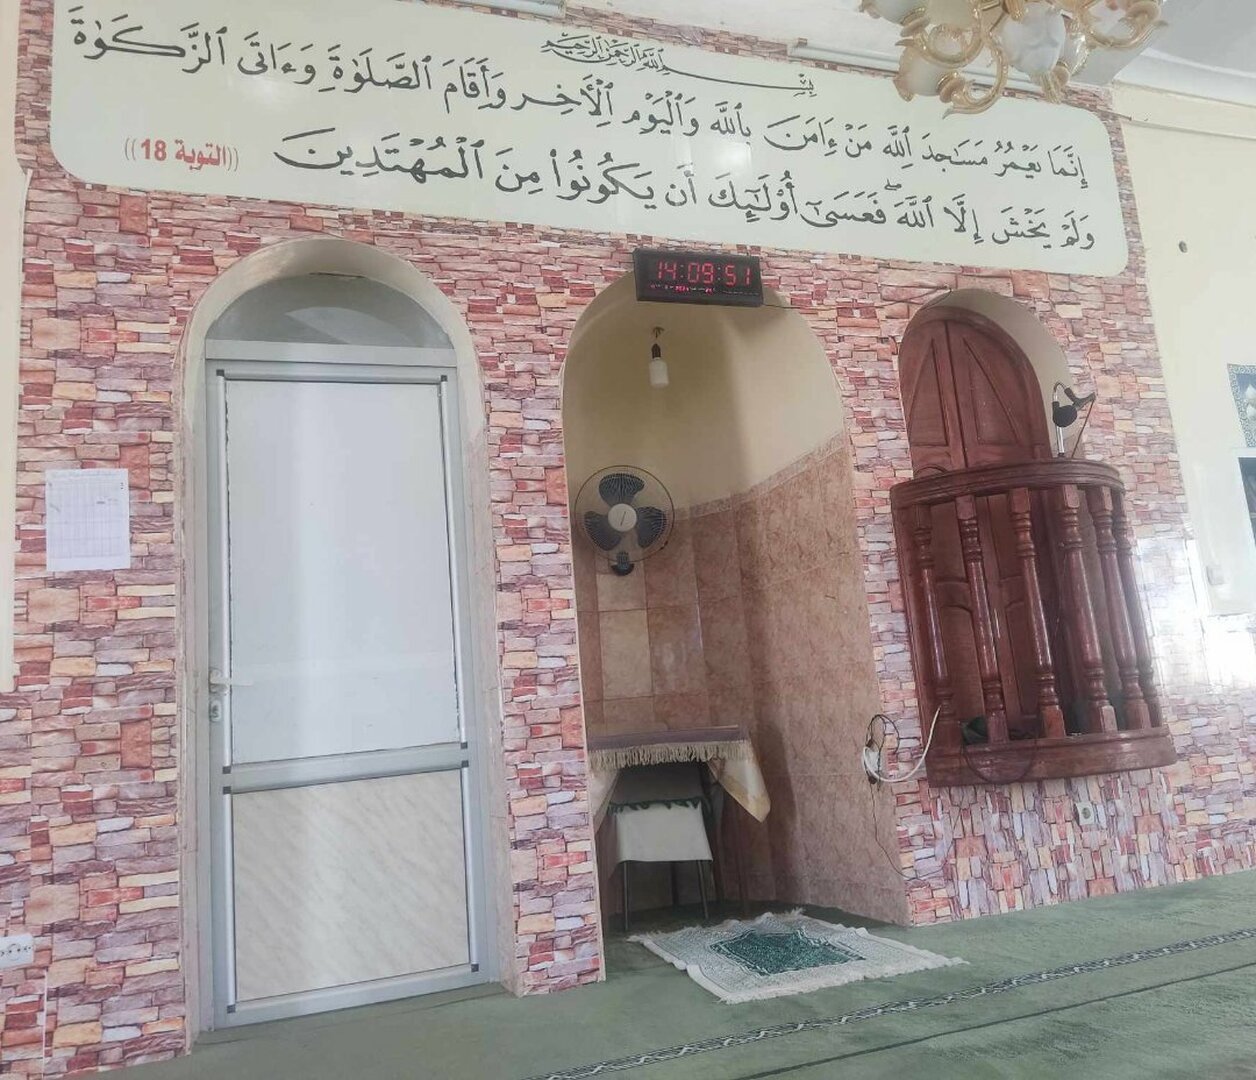 بِسْمِ ٱللَّهِ ٱلرَّحْمَٰنِ ٱلرَّحِيمِ
إِنَّمَا يَعْمُرُ مَسَٰجِدَ ٱللَّهِ مَنْ ءَامَنَ بِٱللَّهِ وَٱلْيَوْمِ ٱلْأَخِرِ وَأَقَامَ ٱلصَّلَوٰةَ وَءَاتَى ٱلزَّكَوٰةَ
وَلَمْ يَخْشَ إِلَّا ٱللَّهَ ۖ فَعَسَىٰٓ أُوْلَٰٓئِكَ أَن يَكُونُوا۟ مِنَ ٱلْمُهْتَدِينَ ((التوبة 18))
14:09:51